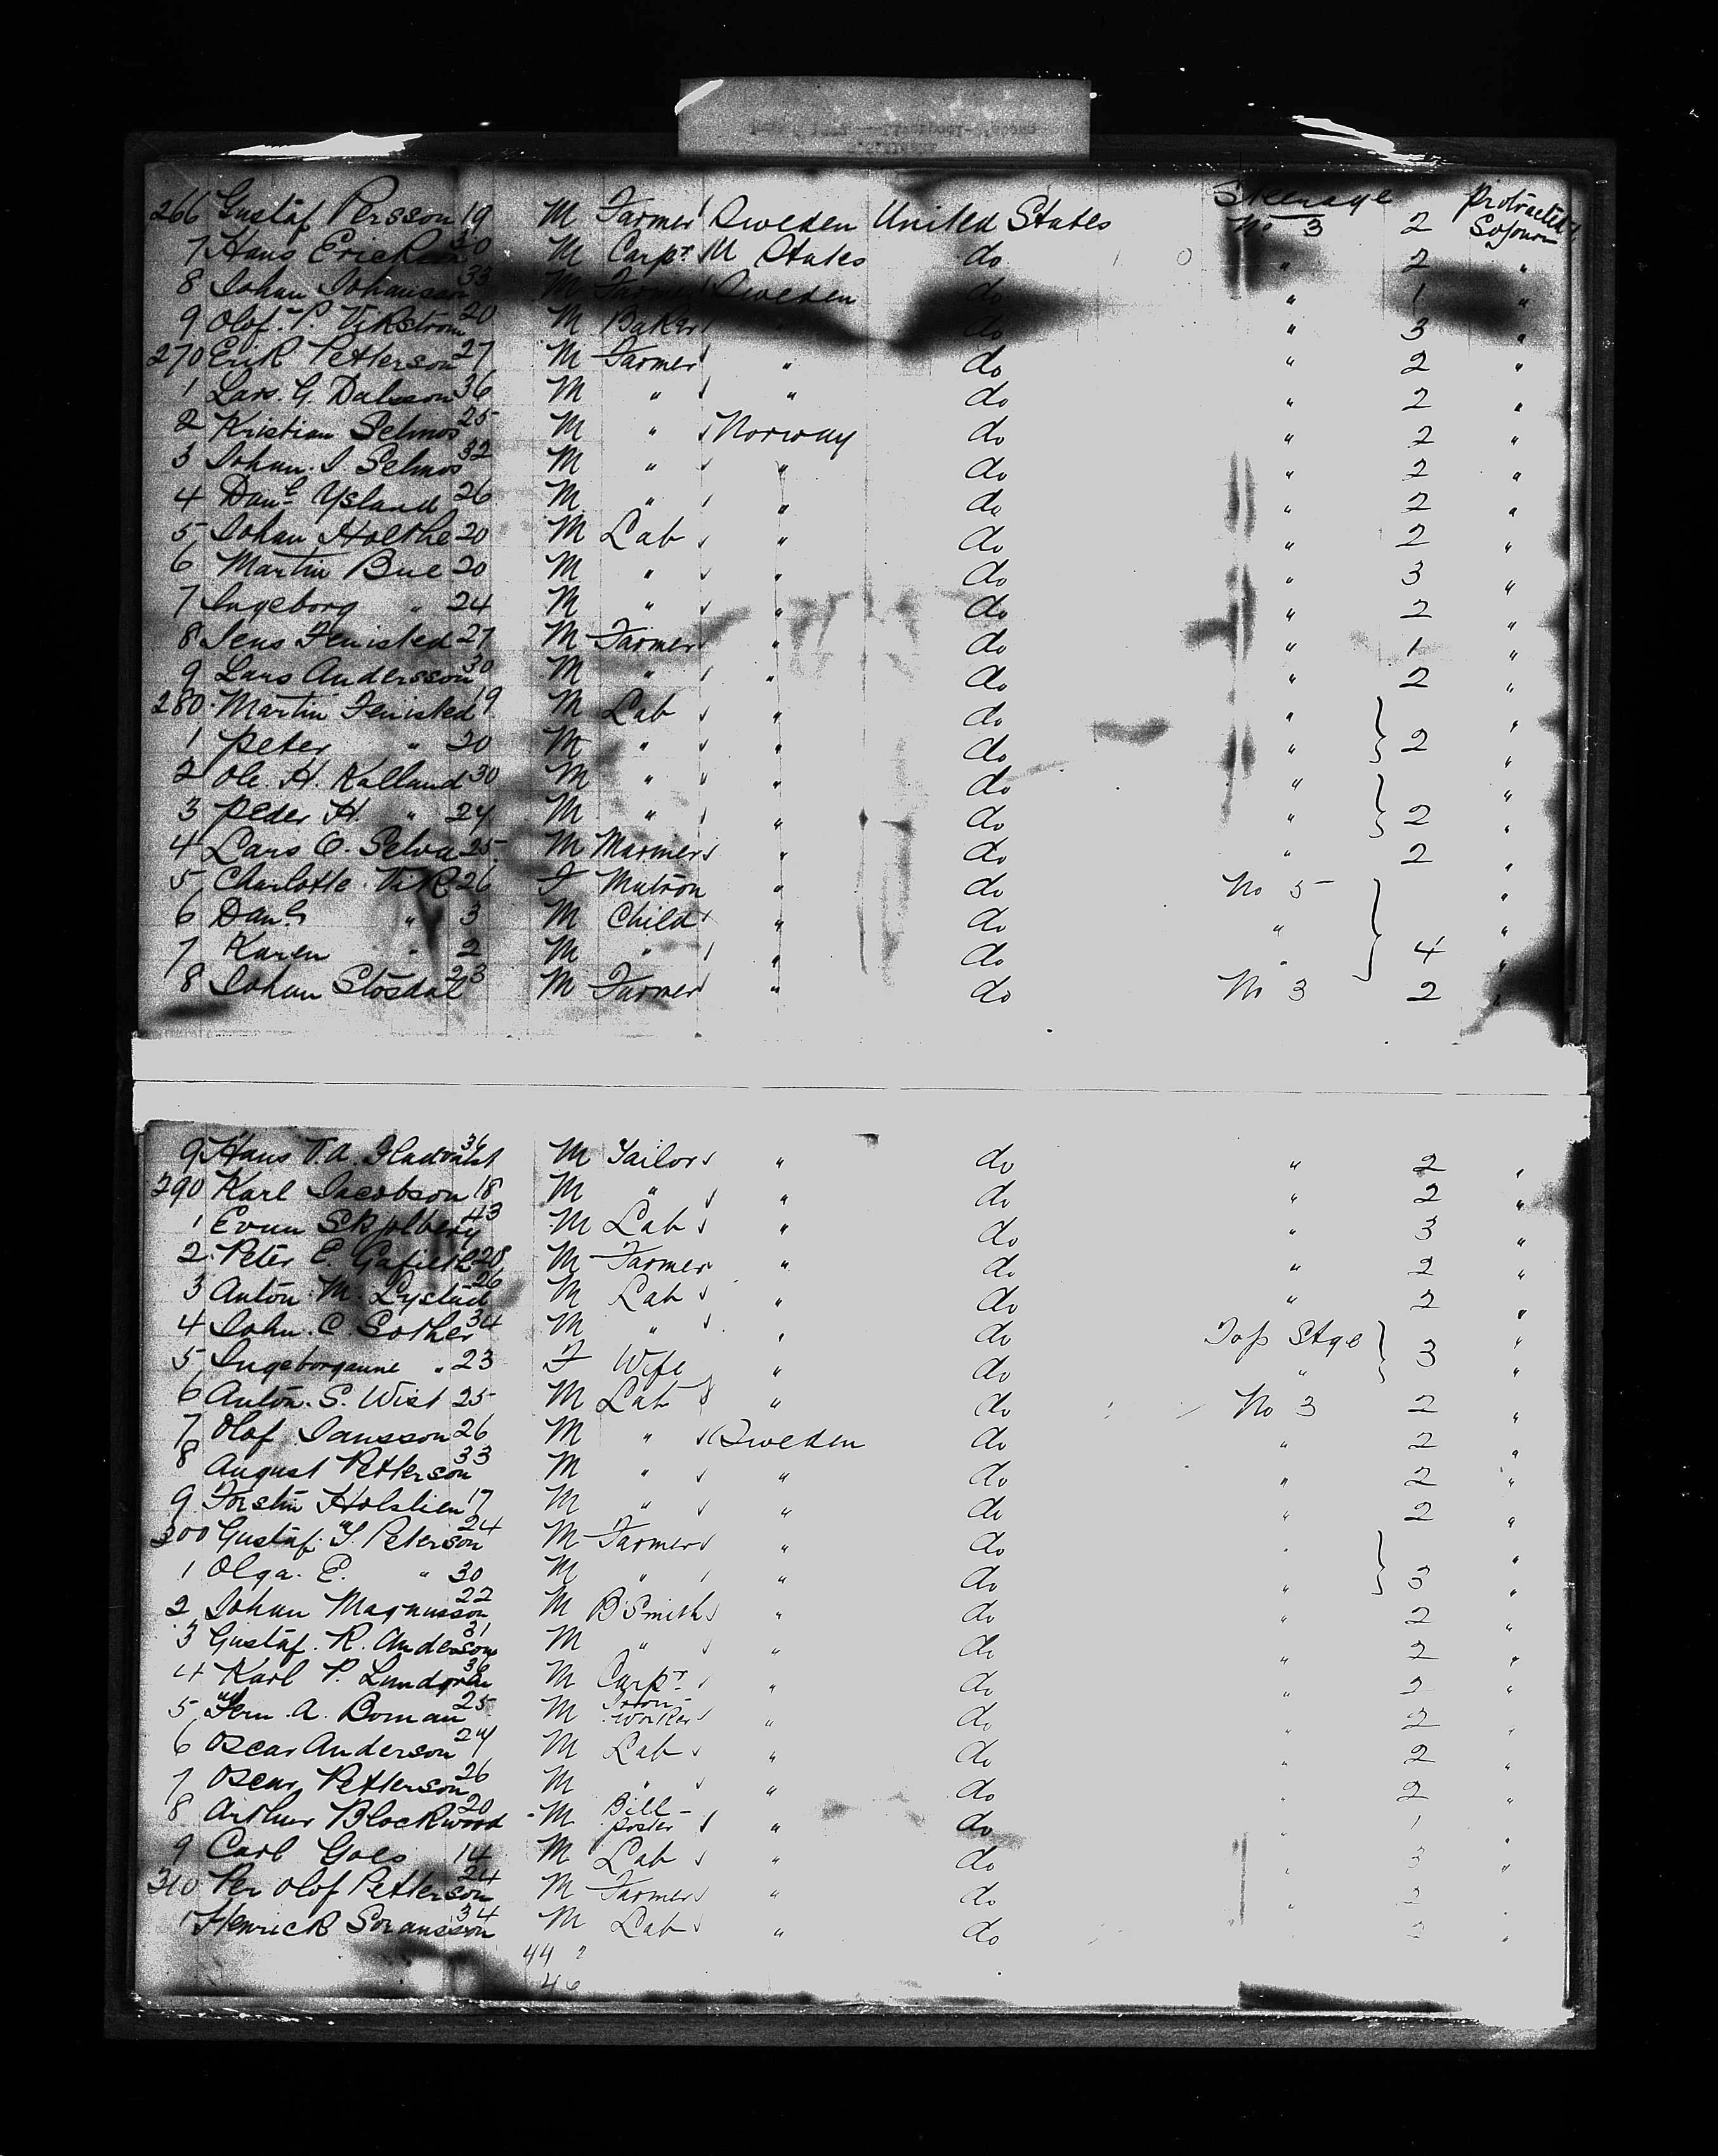 Steerage Protracted
266 Gustaf Persson 19 M Farmer Sweden United States No 3 2 Sojourn
7 Hans Erickson M Carpr U States do " 2 "
8 Johan Johansson 33 M Farmer Sweden do " 1 "
9 Olof. P. Vikstrom 20 M Baker " do " 3 "
270 Erik Petterson 27 M Farmer " do " 2 "
1 Lars. G. Dalsson 36 M " " do " 2 "
2 Kristian Selmos 25 M " Norway do " 2 "
3 Johan. I Selmos 32 M " " do " 2 "
4 Danl Ysland 26 M " " do " 2 "
5 Johan Holthe 20 M Lab " do " 2 "
6 Martin Bue 20 M " " do " 3 "
7 Ingeborg " 24 M " " do " 2 "
8 Jens Fenisted 27 M Farmer " do " 1 "
9 Lars Andersson 30 M " " do " 2 "
280 Martin Fenisted 19 M Lab " do " "
1 Peter " 20 M " " do " 2 "
2 Ole. H. Kalland 30 M " " do " "
3 Peder H. " 24 M " " do " 2 "
4 Lars O. Selva 25 M Marmer " do " 2 "
5 Charlotte Vik 26 F Matron " do No 5 "
6 Danl " 3 M Child " do " "
7 Karen " 2 M " " do " 4 "
8 Johan Slosdal 23 M Farmer " do No 3 2 "
9 Hans V.A. 36 M Tailor " do " 2 "
290 Karl Jacobson 18 M " " do " 2 "
1 Evun Skjolberg 43 M Lab " do " 3 "
2 Peter E. 28 M Farmer " do " 2 "
3 Anton M. Lystad 26 M Lab " do " 2 "
4 John. C. Sother 34 M " " do Top Stge "
5 Ingeborganne " 23 F Wife " do " 3 "
6 Anton. S. Wist 25 M Lab " do No 3 2 "
7 Olof Jansson 26 M " Sweden do " 2 "
8 August Petterson 33 M " " do " 2 "
9 Torstin Holstien 17 M " " do " 2 "
300 Gustaf. Peterson 24 M Farmer " do " "
1 Olga. E. " 30 M " " do " 3 "
2 Johan Magnusson 22 M B Smith " do " 2 "
3 Gustaf. R. Anderson 31 M " " do " 2 "
4 Karl P. Lundgren M Carpr " do " 2 "
5 A. Boman 25 M Iron-
worker " do " 2 "
6 Oscar Anderson 24 M Lab " do " 2 "
7 Oscar Petterson 26 M " " do " 2 "
8 Arthur Blockwood 20 M Bill-
poster " do " 1 "
9 Carl Goes 14 M Lab " do " 3 "
310 Per Olof Petterson 24 M Farmer " do " 2 "
1 Henrick Soransson 34 M Lab " do 2 "
44 2
46